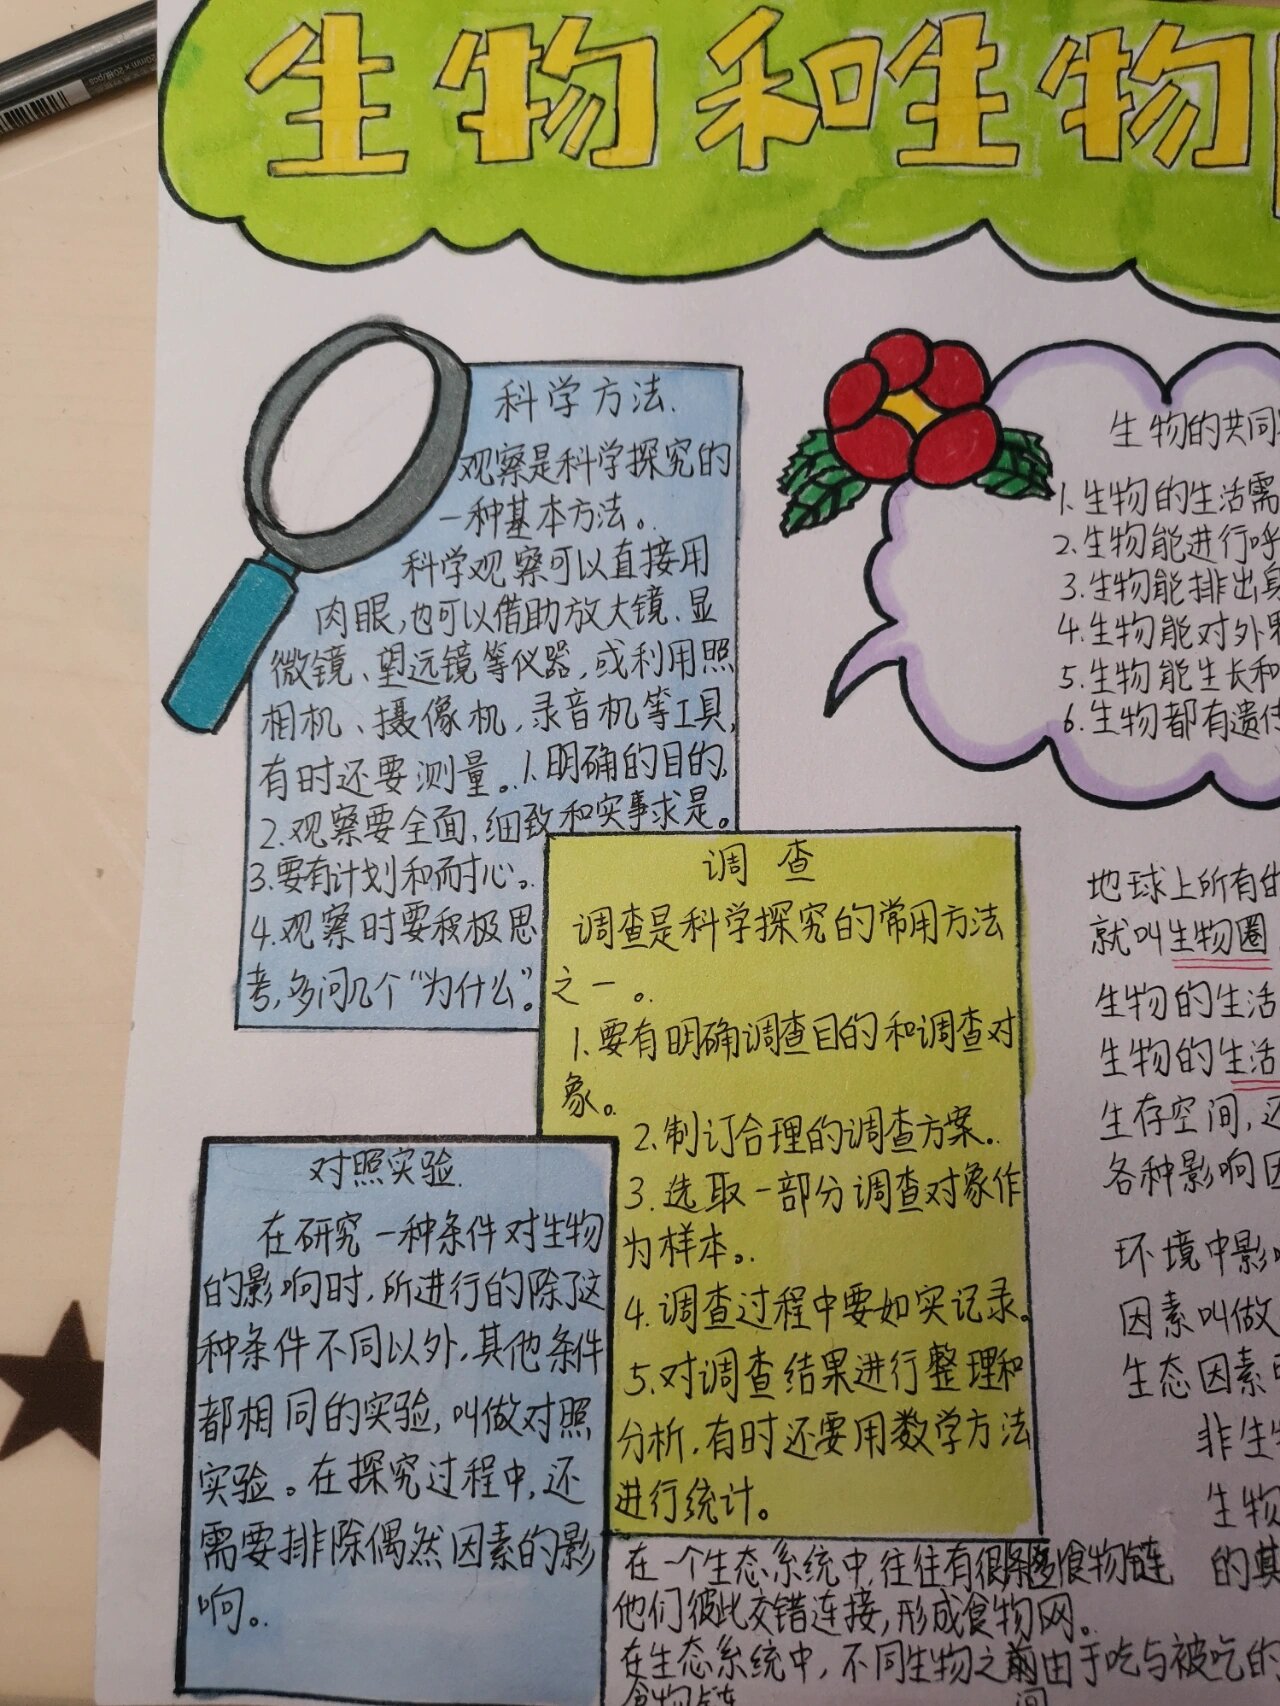 20mm x 20格/pcs
生物和生物
科学方法.
观察是科学探究的
一种基本方法。
科学观察可以直接用
肉眼,也可以借助放大镜、显
微镜、望远镜等仪器,或利用照
相机、摄像机,录音机等工具,
有时还要测量。1.明确的目的,
2.观察要全面,细致和实事求是。
3.要有计划和耐心。
4.观察时要积极思
考,多问几个“为什么”。
调查
调查是科学探究的常用方法
之一。
1.要有明确调查目的和调查对
象。
2.制订合理的调查方案。
3.选取一部分调查对象作
为样本。
4.调查过程中要如实记录。
5.对调查结果进行整理和
分析,有时还要用数学方法
进行统计。
对照实验.
在研究一种条件对生物
的影响时,所进行的除了这
种条件不同以外,其他条件
都相同的实验,叫做对照
实验。在探究过程中,还
需要排除偶然因素的影
响。
在一个生态系统中,往往有很多食物链
他们彼此交错连接,形成食物网。
在生态系统中,不同生物之间由于吃与被吃的
食物链
生物的共同
1.生物的生活需
2.生物能进行呼
3.生物能排出身
4.生物能对外界
5.生物能生长和
6.生物都有遗传
地球上所有的
就叫生物圈
生物的生活
生物的生活
生存空间,还
各种影响因
环境中影响
因素叫做
生态因素
非生物
生物
的其